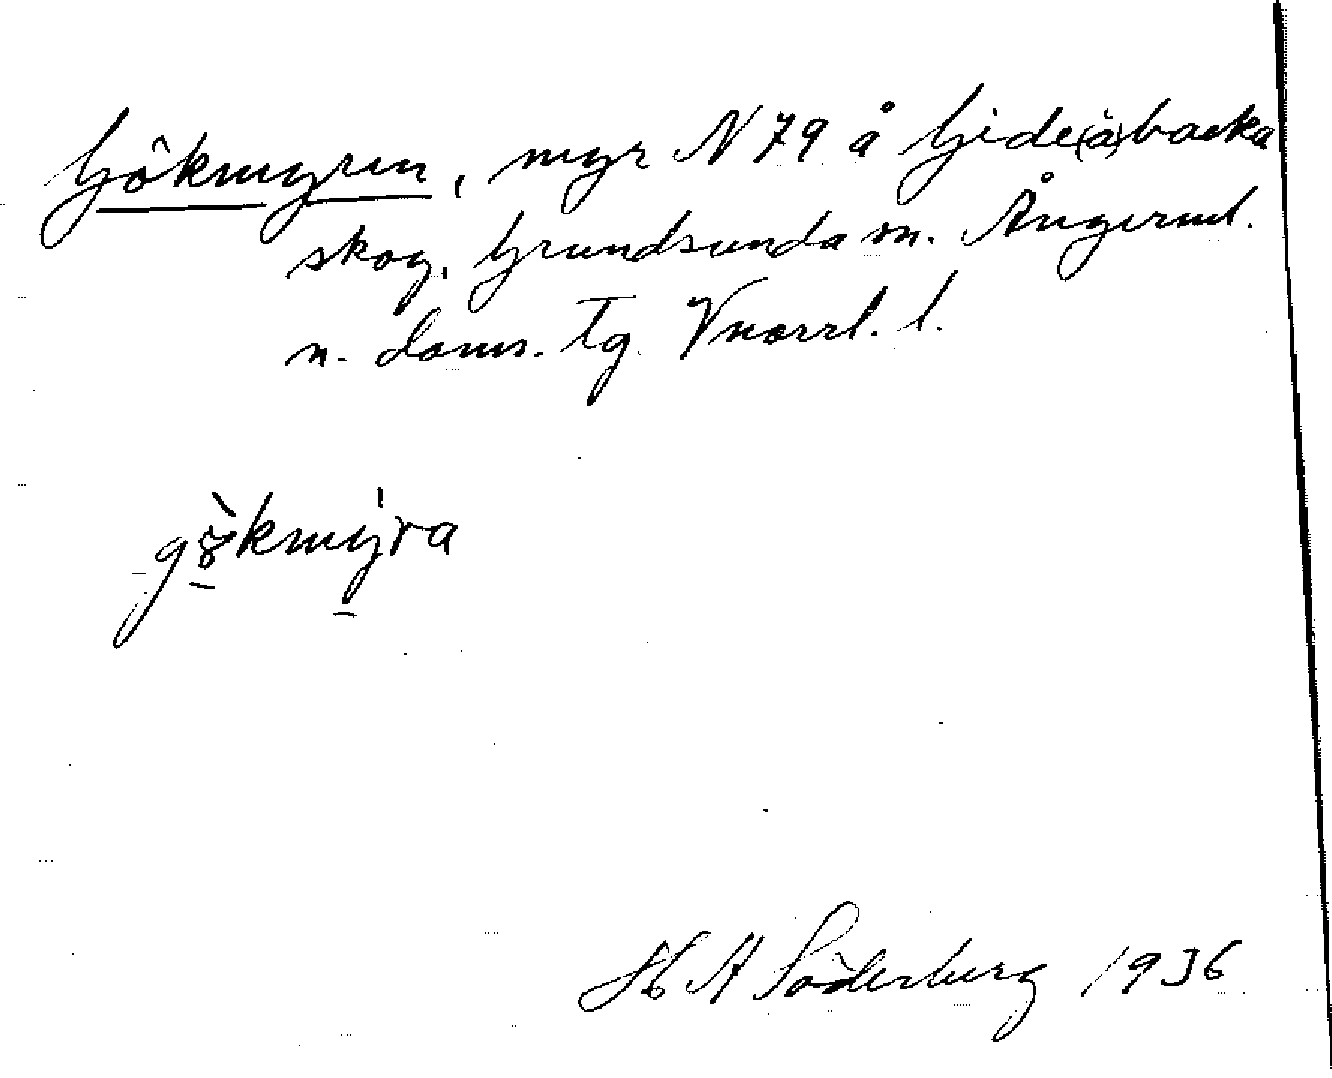 Gökmyren, myr N 79 å Gide(å)backa
skog, Grundsunda sn. Ångerml.
n. doms. Tg. Vnorrl. l.
gökmyra
H A Söderberg 1936